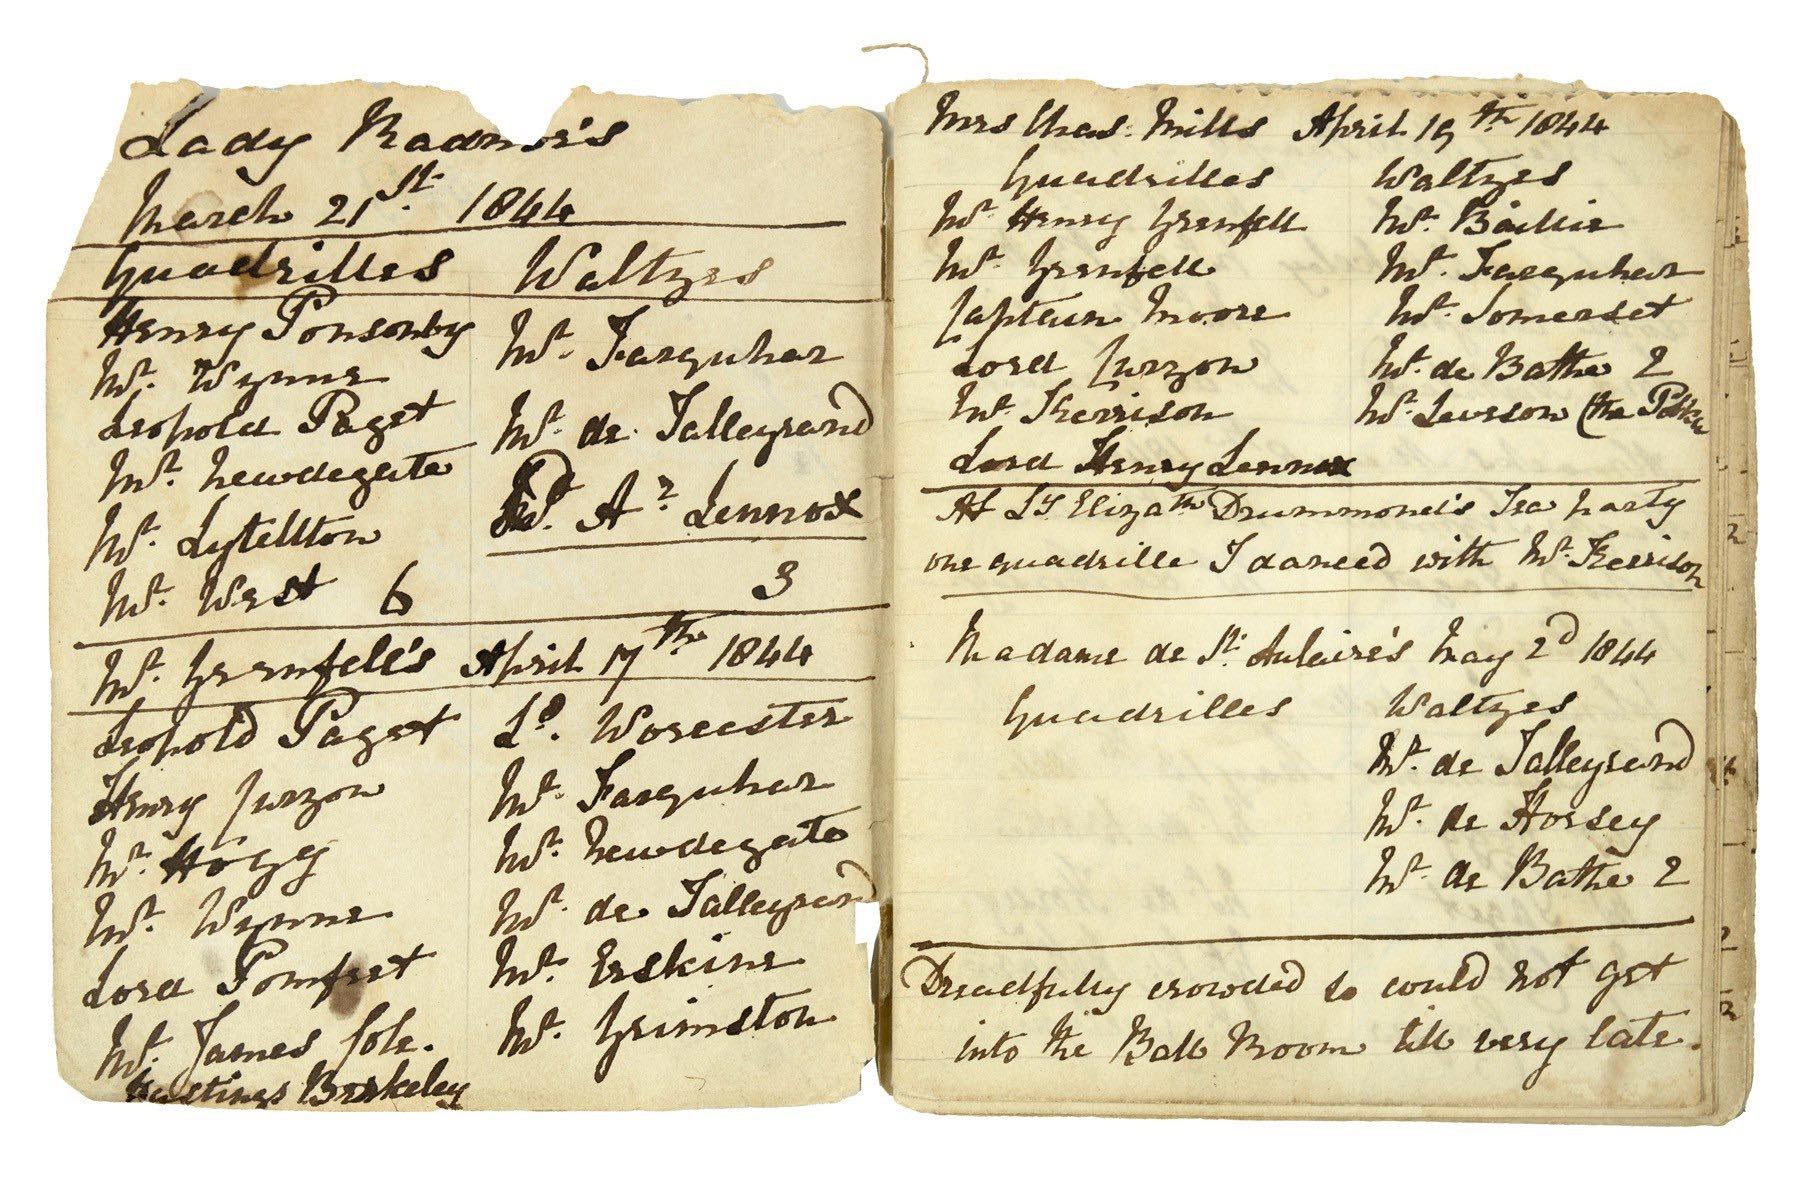 Lady Radnor's
March 21st. 1844
Quadrilles Waltzes
Henry Ponsonby
Mr. Wynne
Leopold Paget
Mr. Newdegate
Mr. Lytellton
Mr. West 6
Mr. Farquhar
Mr. de Talleyrand
Ar. Lennox
3
Mr. Grenfell's April 17th 1844
Leopold Paget
Henry Curzon
Mr. Hogg
Mr. Wynne
Lord Pomfret
Mr. James Cole.
Hastings Berkeley
Ld. Worcester
Mr. Farquhar
Mr. Newdegate
Mr. de Talleyrand
Mr. Erskine
Mr. Grimston
Mrs Chas. Mills April 19th 1844
Quadrilles Waltzes
Mr. Henry Grenfell
Mr. Grenfell
Captain Moore
Lord Curzon
Mr. Kerrison
Lord Henry Lennox
Mr. Baillie
Mr. Farquhar
Mr. Somerset
Mr. de Bathe 2
Mr. Leveson (the Polka
At Ly Elizath Drummond's Tea party
one quadrille I danced with Mr. Kerrison
Madame de St. Aulaire's May 2d 1844
Quadrilles Waltzes
Mr. de Talleyrand
Mr. de Horsey
Mr. de Bathe 2
Dreadfully crowded so could not get
into the Ball Room till very late.